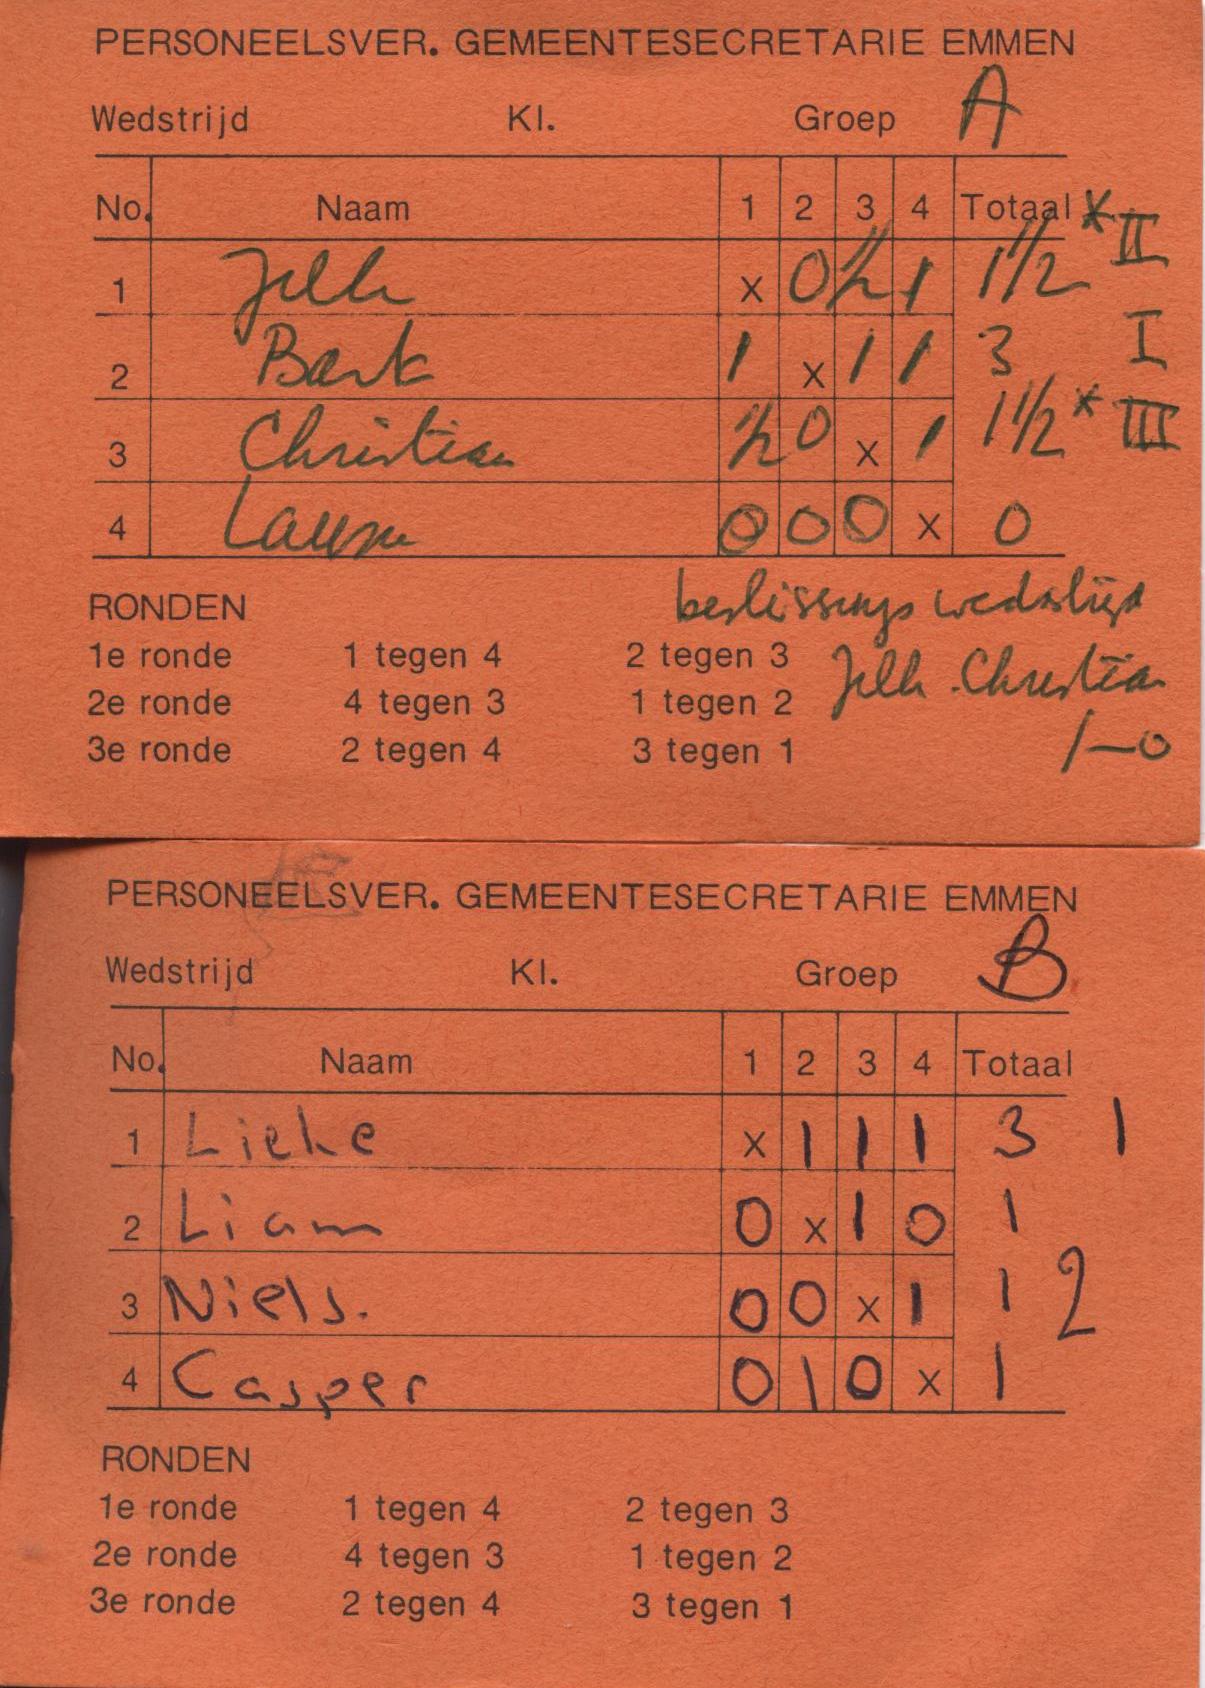 PERSONEELSVER. GEMEENTESECRETARIE EMMEN
Wedstrijd Kl. Groep A
No. Naam 1 2 3 4 Totaal
1 Jelle x 0 ½ 1 1 1/2 * II
2 Bart 1 x 1 1 3 I
3 Christian ½ 0 x 1 1 1/2 * III
4 0 0 0 x 0
beslissings wedstrijd
RONDEN
1e ronde 1 tegen 4 2 tegen 3
Jelle - Christian
2e ronde 4 tegen 3 1 tegen 2
3e ronde 2 tegen 4 3 tegen 1
1-0
PERSONEELSVER. GEMEENTESECRETARIE EMMEN
Wedstrijd Kl. Groep B
No. Naam 1 2 3 4 Totaal
1 Lieke x 1 1 1 3 1
2 Liam 0 x 1 0 1
3 Niels. 0 0 x 1 1 2
4 Casper 0 1 0 x 1
RONDEN
1e ronde 1 tegen 4 2 tegen 3
2e ronde 4 tegen 3 1 tegen 2
3e ronde 2 tegen 4 3 tegen 1